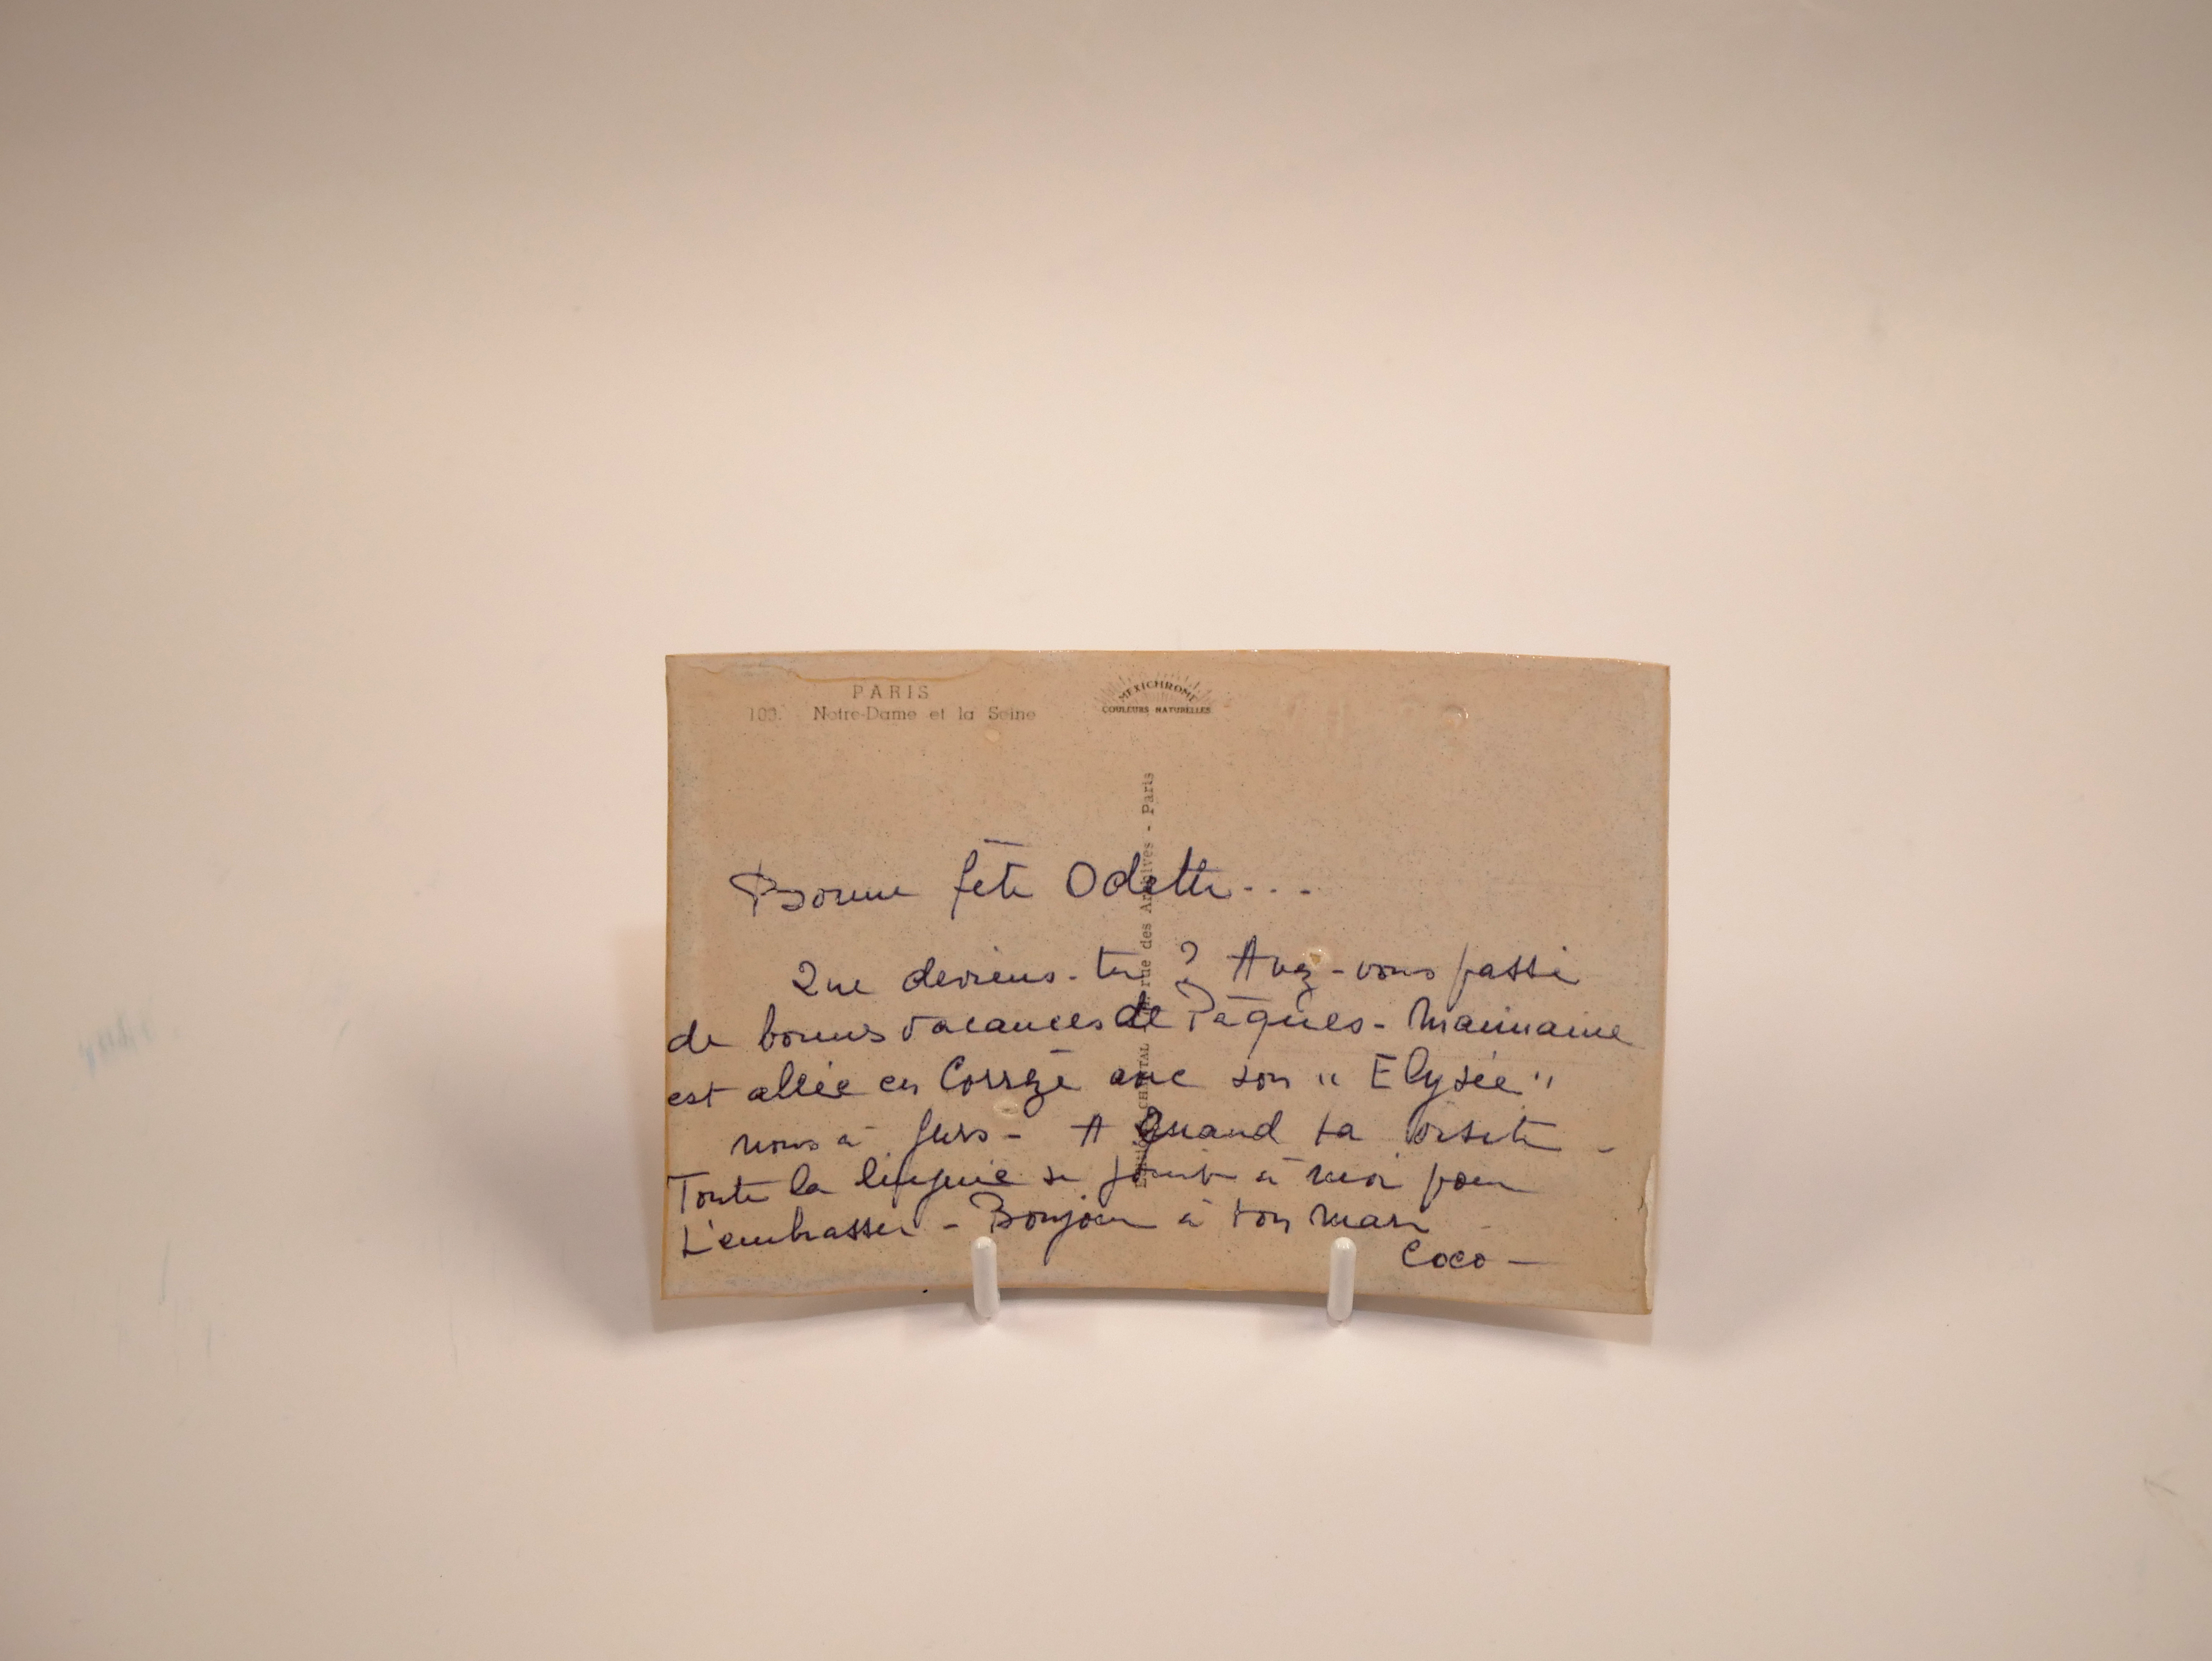 PARIS
100. Notre-Dame et la Seine
MEXICHROME
COULEURS NATURELLES
rue des Archives - Paris
Bonne fête Odette...
Que deviens-tu ? Avez-vous passé
de bonnes vacances de Pâques - Maimaine
est allée en Corrèze avec son " Elysée "
nous à - A Quand ta visite -
Toute la se joint à moi pour
t'embrasser - Bonjour à ton mari
Coco -